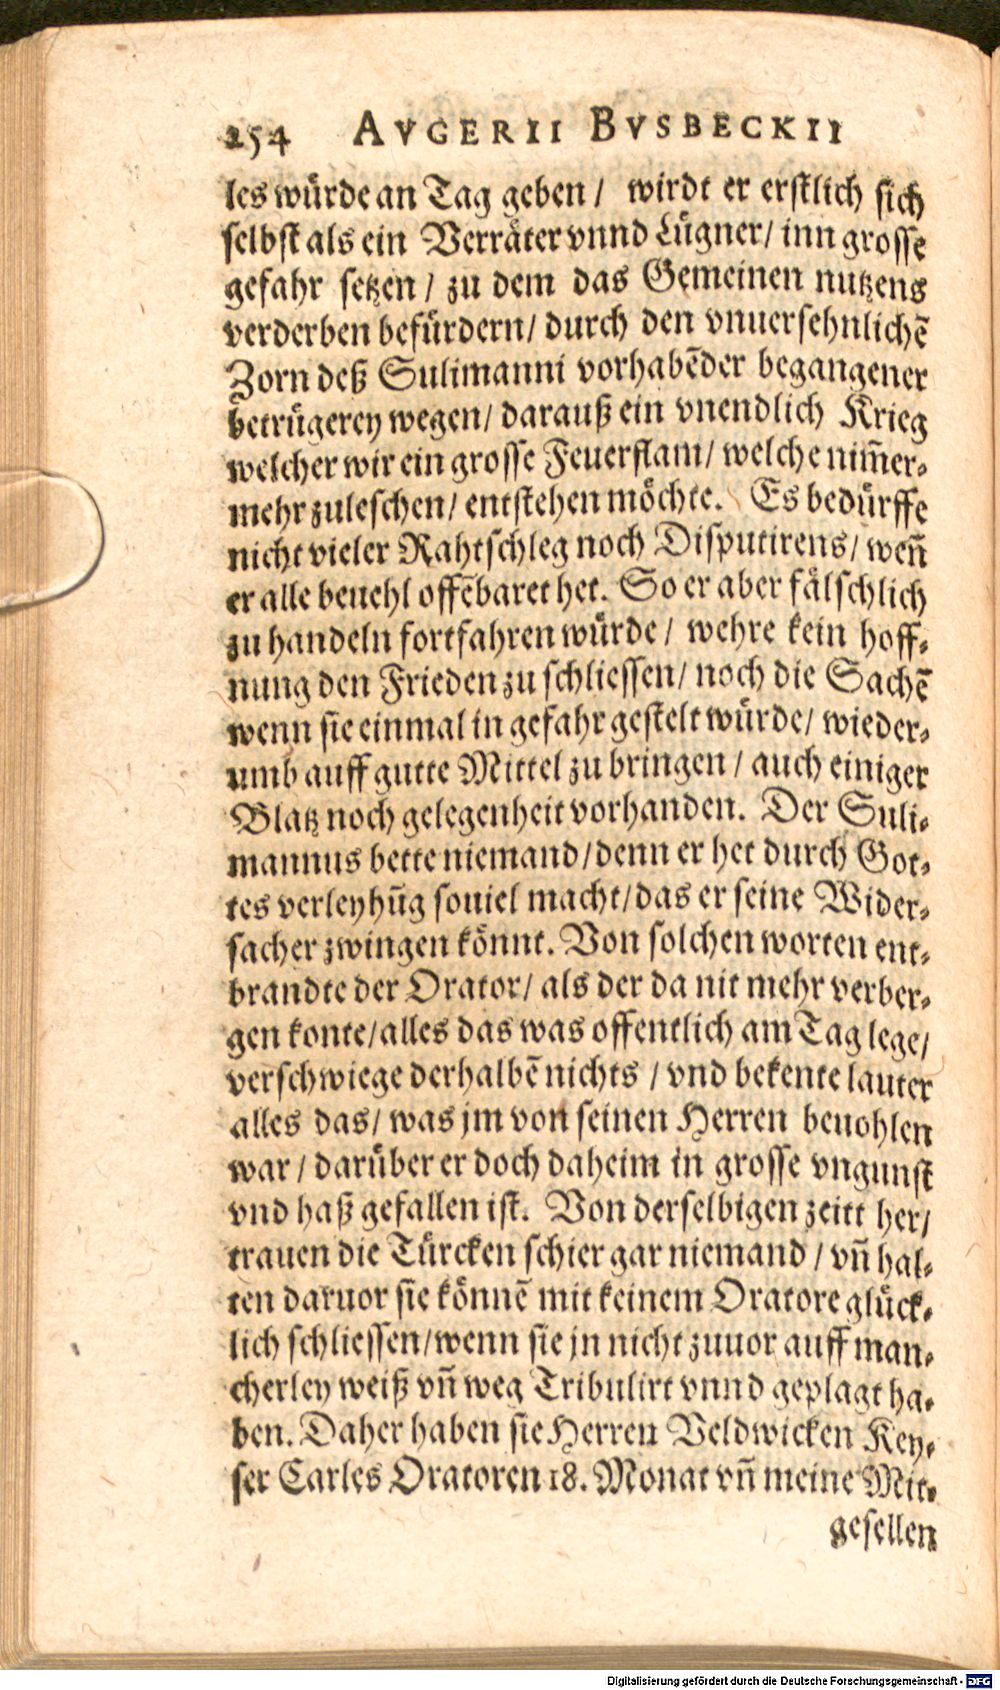 254 AVGERII BVSBECKII
les würde an Tag geben / wirdt er erstlich sich
selbst als ein Verräter vnnd Lügner / inn grosse
gefahr setzen / zu dem das Gemeinen nutzens
verderben befürdern / durch den vnuersehnlichē
Zorn deß Sulimanni vorhabēder begangener
betrügerey wegen / darauß ein vnendlich Krieg
welcher wir ein grosse Feuerflam / welche nim̄er-
mehr zuleschen / entstehen möchte. Es bedürffe
nicht vieler Rahtschleg noch Disputirens / weñ
er alle beuehl offēbaret het. So er aber fälschlich
zu handeln fortfahren würde / wehre kein hoff-
nung den Frieden zu schliessen / noch die Sachē
wenn sie einmal in gefahr gestelt würde / wieder-
umb auff gutte Mittel zu bringen / auch einiger
Blatz noch gelegenheit vorhanden. Der Suli-
mannus bette niemand / denn er het durch Got-
tes verleyhūg souiel macht / das er seine Wider-
sacher zwingen könnt. Von solchen worten ent-
brandte der Orator / als der da nit mehr verber-
gen konte / alles das was offentlich am Tag lege /
verschwiege derhalbē nichts / vnd bekente lauter
alles das / was jm von seinen Herren beuohlen
war / darüber er doch daheim in grosse vngunst
vnd haß gefallen ist. Von derselbigen zeitt her /
trauen die Türcken schier gar niemand / vñ hal-
ten daruor sie könnē mit keinem Oratore glück-
lich schliessen / wenn sie jn nicht zuuor auff man-
cherley weiß vñ weg Tribulirt vnnd geplagt ha-
ben. Daher haben sie Herren Veldwicken Key-
ser Carles Oratoren 18. Monat vñ meine Mit-
gesellen
Digitalisierung gefördert durch die Deutsche Forschungsgemeinschaft - DFG